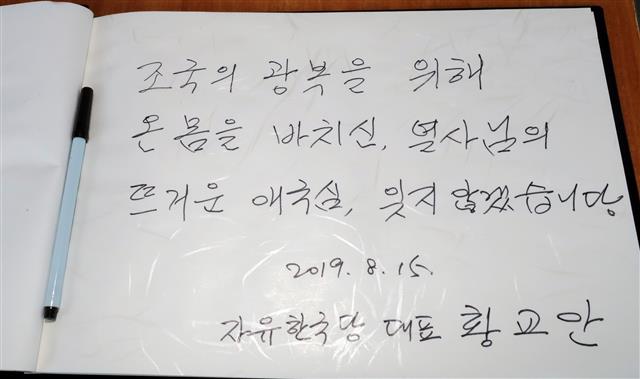 조국의 광복을 위해
온 몸을 바치신, 열사님의
뜨거운 애국심, 잊지 않겠습니다
2019. 8. 15.
자유한국당 대표 황교안